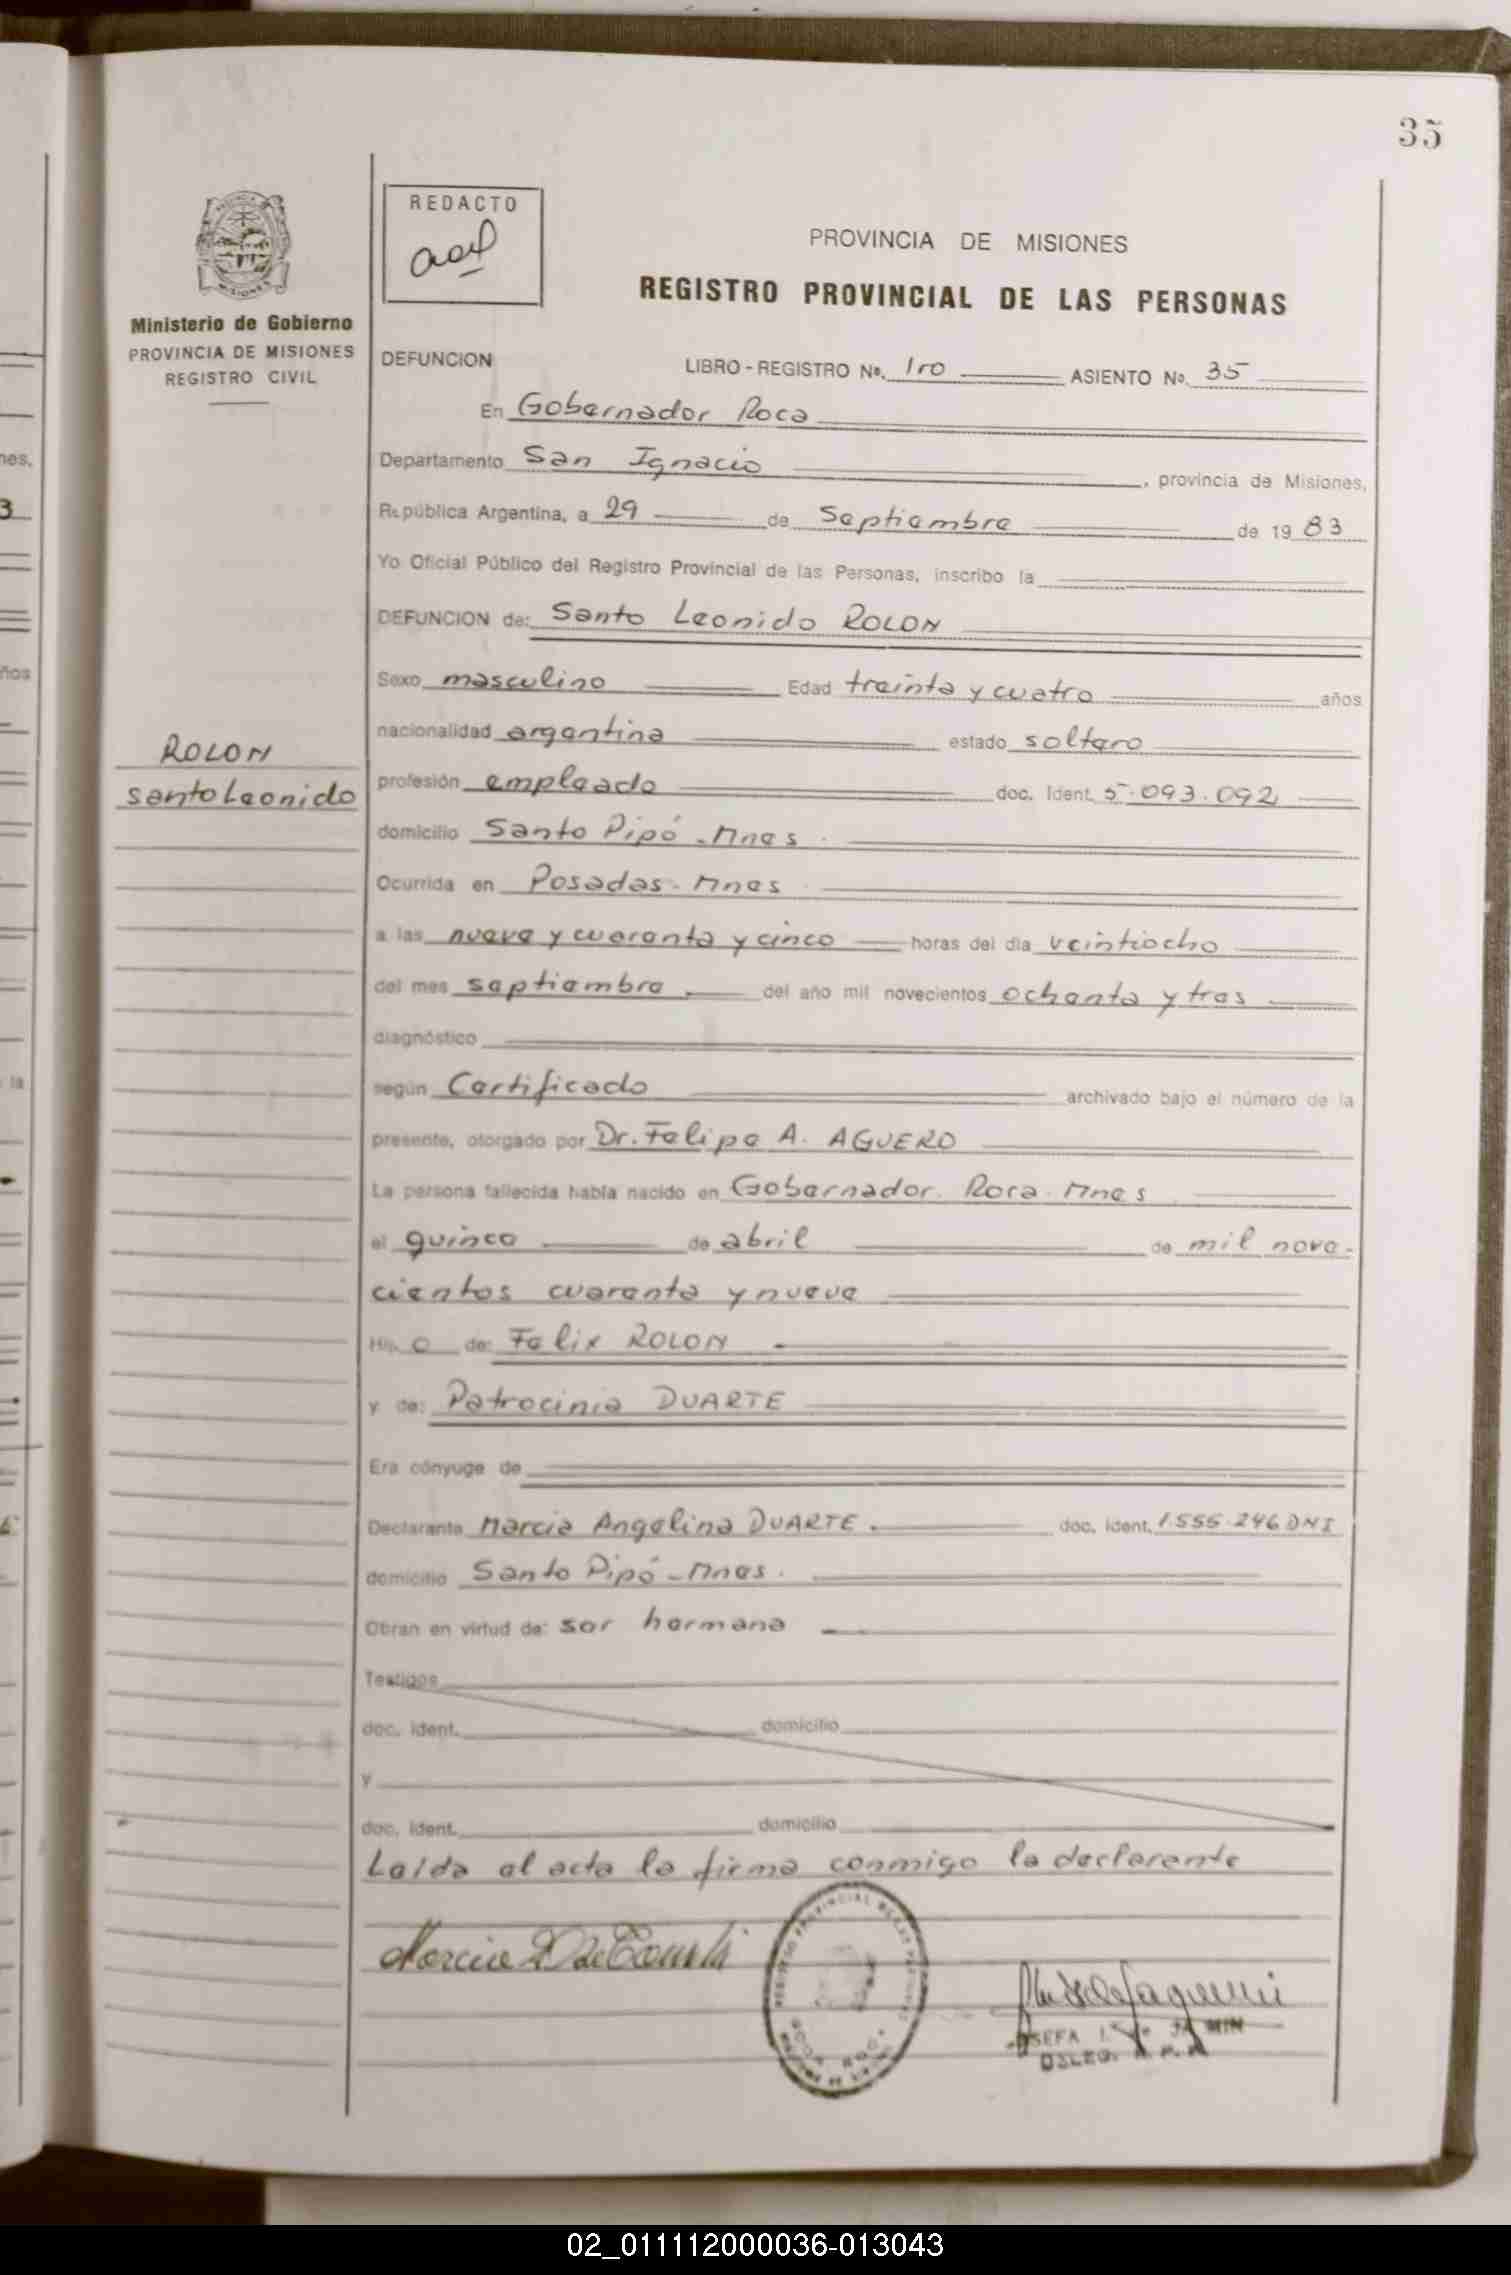 35
REDACTO
PROVINCIA DE MISIONES
REGISTRO PROVINCIAL DE LAS PERSONAS
Ministerio de Gobierno
PROVINCIA DE MISIONES
REGISTRO CIVIL
DEFUNCION LIBRO - REGISTRO No. 1ro ASIENTO No. 35
En Gobernador Roca
Departamento San Ignacio, provincia de Misiones,
República Argentina, a 29 de Septiembre de 1983
Yo Oficial Público del Registro Provincial de las Personas, inscribo la
DEFUNCION de: Santo Leonido ROLON
Sexo masculino Edad treinta y cuatro años
ROLON
Santo Leonido
nacionalidad argentina estado soltero
profesión empleado doc. Ident. 5.093.092
domicilio Santo Pipó - Mnes.
Ocurrida en Posadas - Mnes
a las nueve y cuarenta y cinco horas del día veintiocho
del mes septiembre del año mil novecientos ochenta y tres
diagnóstico
según Certificado archivado bajo el número de la
presente, otorgado por Dr. Felipe A. AGUERO
La persona fallecida había nacido en Gobernador Roca - Mnes
el quince de abril de mil nove-
cientos cuarenta y nueve
Hijo de: Felix ROLON
y de: Patrocinia DUARTE
Era cónyuge de
Declarante Marcia Angelina DUARTE doc. ident. 1.555.246 DNI
domicilio Santo Pipó - Mnes.
Obran en virtud de: ser hermana
Testigos
doc. ident. domicilio
y
doc. ident. domicilio
Leída el acta la firma conmigo la declarante
Marcia D de
REGISTRO PROVINCIAL DE LAS PERSONAS
02_011112000036-013043